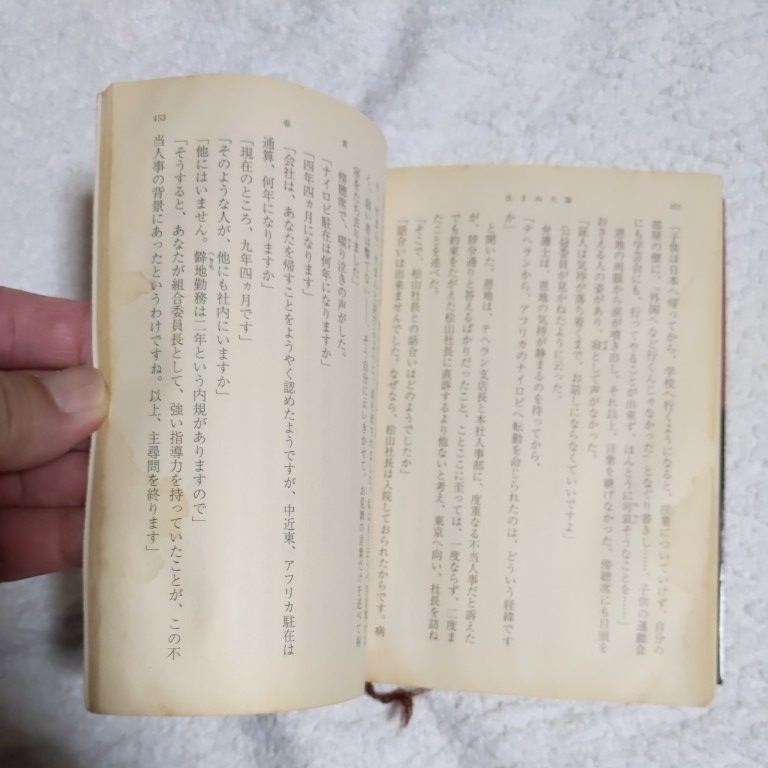 452
沈まぬ太陽
「子供は日本へ帰ってから、学校へ行くようになると、授業についていけず、自分の
部屋の壁に、〝外国〟など行くんじゃなかった〟となぐり書きし……、子供の運動会
にも学芸会にも、行ってやることが出来ず、ほんとうに可哀そうなことを……」
恩地の両眼から涙が噴き出し、それ以上、言葉を継げなかった。傍聴席にも目頭を
おさえる人の姿があり、寂として声がなかった。
「証人は気持が落ち着くまで、お話しにならなくていいですよ」
公益委員が見かねたように云った。
弁護士は、恩地の気持が静まるのを待ってから、
「テヘランから、アフリカのナイロビへ転勤を命じられたのは、どういう経緯です
か」
と聞いた。恩地は、テヘラン支店長と本社人事部に、度重なる不当人事だと訴えた
が、辞令通りと答えるばかりだったこと、ことここに至っては、一度ならず、二度ま
でも約束をたがえた桧山社長に直訴するより他ないと考え、東京へ向い、社長を訪ね
たことを述べた。
「そこで、桧山社長との話合いはどのようでしたか」
「話合いは出来ませんでした。なぜなら、桧山社長は入院しておられたからです。病
453
室をたち去りました」
傍聴席で、啜り泣きの声がした。
「ナイロビ駐在は何年になりますか」
「四年四ヵ月になります」
「会社は、あなたを帰すことをようやく認めたようですが、中近東、アフリカ駐在は
通算、何年になりますか」
「現在のところ、九年四ヵ月です」
「そのような人が、他にも社内にいますか」
「他にはいません。僻地勤務は二年という内規がありますので」
「そうすると、あなたが組合委員長として、強い指導力を持っていたことが、この不
当人事の背景にあったというわけですね。以上、主尋問を終ります」